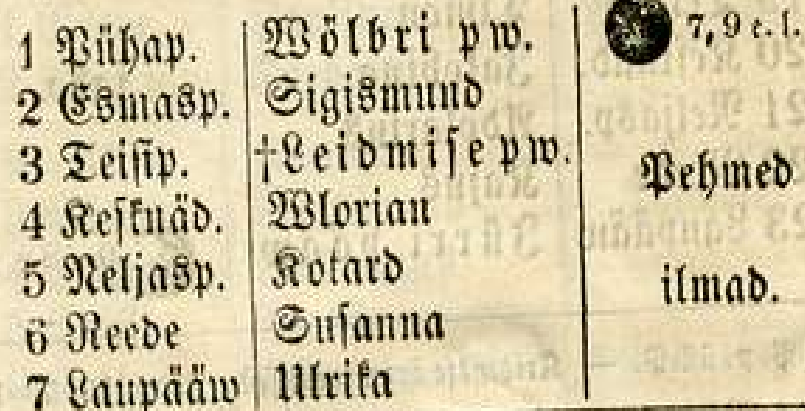 1 Pühap. Wölbri pw. 7,9 e. l.
2 Esmasp. Sigismund
3 Teisip. †Leidmise pw. Pehmed
4 Kesknäd. Wlorian
5 Neljasp. Kotard ilmad.
6 Reede Susanna
7 Laupääw Ulrika